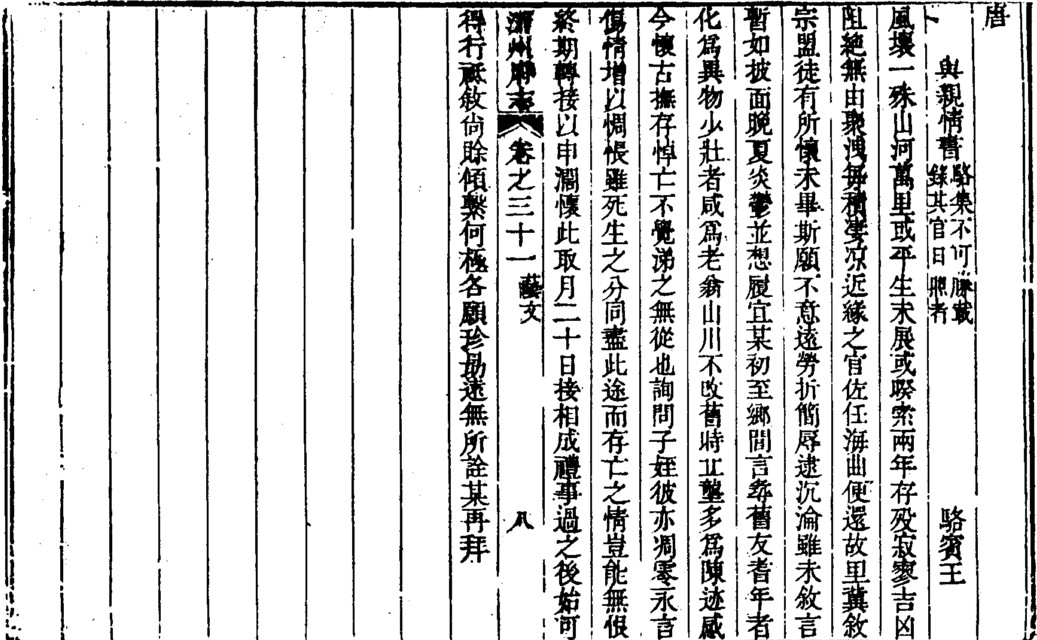 唐
與親情書 駱集不可勝載錄其官日照者 駱賓王
風壤一殊山河萬里或平生未展或睽索兩年存歿寂寥吉凶
阻絕無由聚洩每積凄凉近緣之官佐任海曲便還故里冀敘
宗盟徒有所懷未畢斯願不意遠勞折簡辱逮沉淪雖未敘言
暫如披面晚夏炎鬱並想履宜某初至鄉閭言尋舊友耆年者
化爲異物少壯者咸爲老翁山川不改舊時丘壟多爲陳迹感
今懷古撫存悼亡不覺涕之無從也詢問子姪彼亦凋零永言
傷情增以惆悵雖死生之分同盡此途而存亡之情豈能無恨
終期轉接以申濶懷此取月二十日接相成禮事過之後始可
州府志 卷之三十一 藝文 八
得行祗敘尙賒傾繫何極各願珍勗遠無所詮某再拜